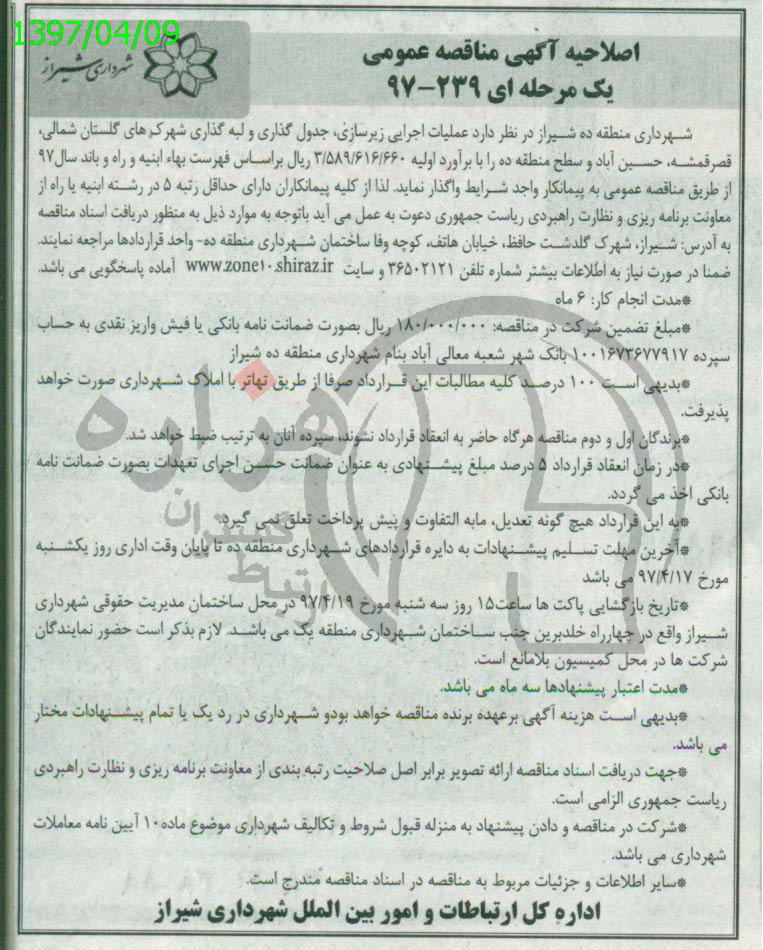 1397/04/09
شهرداری شیراز
اصلاحیه آگهی مناقصه عمومی
یک مرحله ای ۲۳۹-۹۷
شهرداری منطقه ده شیراز در نظر دارد عملیات اجرایی زیرسازی، جدول گذاری و لبه گذاری شهرک های گلستان شمالی،
قصرقمشه، حسین آباد و سطح منطقه ده را با برآورد اولیه ۳/۵۸۹/۶۱۶/۶۶۰ ریال براساس فهرست بهاء ابنیه و راه و باند سال۹۷
از طریق مناقصه عمومی به پیمانکار واجد شرایط واگذار نماید. لذا از کلیه پیمانکاران دارای حداقل رتبه ۵ در رشته ابنیه یا راه از
معاونت برنامه ریزی و نظارت راهبردی ریاست جمهوری دعوت به عمل می آید باتوجه به موارد ذیل به منظور دریافت اسناد مناقصه
به آدرس: شیراز، شهرک گلدشت حافظ، خیابان هاتف، کوچه وفا ساختمان شهرداری منطقه ده- واحد قراردادها مراجعه نمایند.
ضمنا در صورت نیاز به اطلاعات بیشتر شماره تلفن ۳۶۵۰۲۱۲۱ و سایت www.zone۱۰.shiraz.ir آماده پاسخگویی می باشد.
*مدت انجام کار: ۶ ماه
*مبلغ تضمین شرکت در مناقصه: ۱۸۰/۰۰۰/۰۰۰ ریال بصورت ضمانت نامه بانکی یا فیش واریز نقدی به حساب
سپرده ۱۰۰۱۶۷۳۶۷۷۹۱۷ بانک شهر شعبه معالی آباد بنام شهرداری منطقه ده شیراز
*بدیهی است ۱۰۰ درصد کلیه مطالبات این قرارداد صرفا از طریق تهاتر با املاک شهرداری صورت خواهد
پذیرفت.
*برندگان اول و دوم مناقصه هرگاه حاضر به انعقاد قرارداد نشوند، سپرده آنان به ترتیب ضبط خواهد شد.
*در زمان انعقاد قرارداد ۵ درصد مبلغ پیشنهادی به عنوان ضمانت حسن اجرای تعهدات بصورت ضمانت نامه
بانکی اخذ می گردد.
*به این قرارداد هیچ گونه تعدیل، مابه التفاوت و پیش پرداخت تعلق نمی گیرد.
*آخرین مهلت تسلیم پیشنهادات به دایره قراردادهای شهرداری منطقه ده تا پایان وقت اداری روز یکشنبه
مورخ ۹۷/۴/۱۷ می باشد
*تاریخ بازگشایی پاکت ها ساعت۱۵ روز سه شنبه مورخ ۹۷/۴/۱۹ در محل ساختمان مدیریت حقوقی شهرداری
شیراز واقع در چهارراه خلدبرین جنب ساختمان شهرداری منطقه یک می باشد. لازم بذکر است حضور نمایندگان
شرکت ها در محل کمیسیون بلامانع است.
*مدت اعتبار پیشنهادها سه ماه می باشد.
*بدیهی است هزینه آگهی برعهده برنده مناقصه خواهد بودو شهرداری در رد یک یا تمام پیشنهادات مختار
می باشد.
*جهت دریافت اسناد مناقصه ارائه تصویر برابر اصل صلاحیت رتبه بندی از معاونت برنامه ریزی و نظارت راهبردی
ریاست جمهوری الزامی است.
*شرکت در مناقصه و دادن پیشنهاد به منزله قبول شروط و تکالیف شهرداری موضوع ماده۱۰ آیین نامه معاملات
شهرداری می باشد.
*سایر اطلاعات و جزئیات مربوط به مناقصه در اسناد مناقصه مندرج است.
اداره کل ارتباطات و امور بین الملل شهرداری شیراز
هزاره
گستران
ارتباط